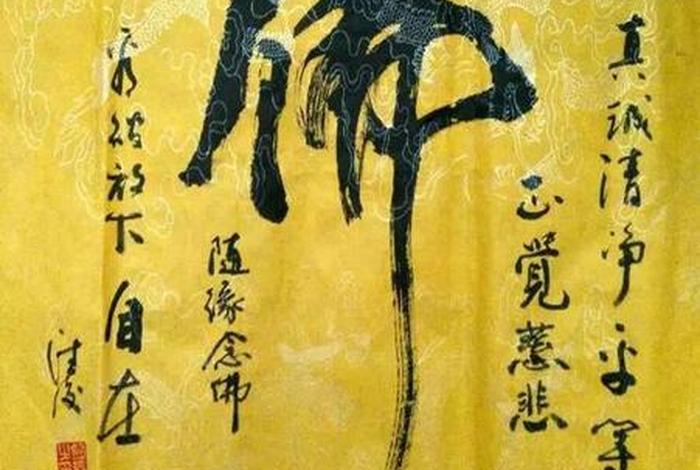 真誠清净平等
正覺慈悲
佛
随緣念佛
看破放下自在